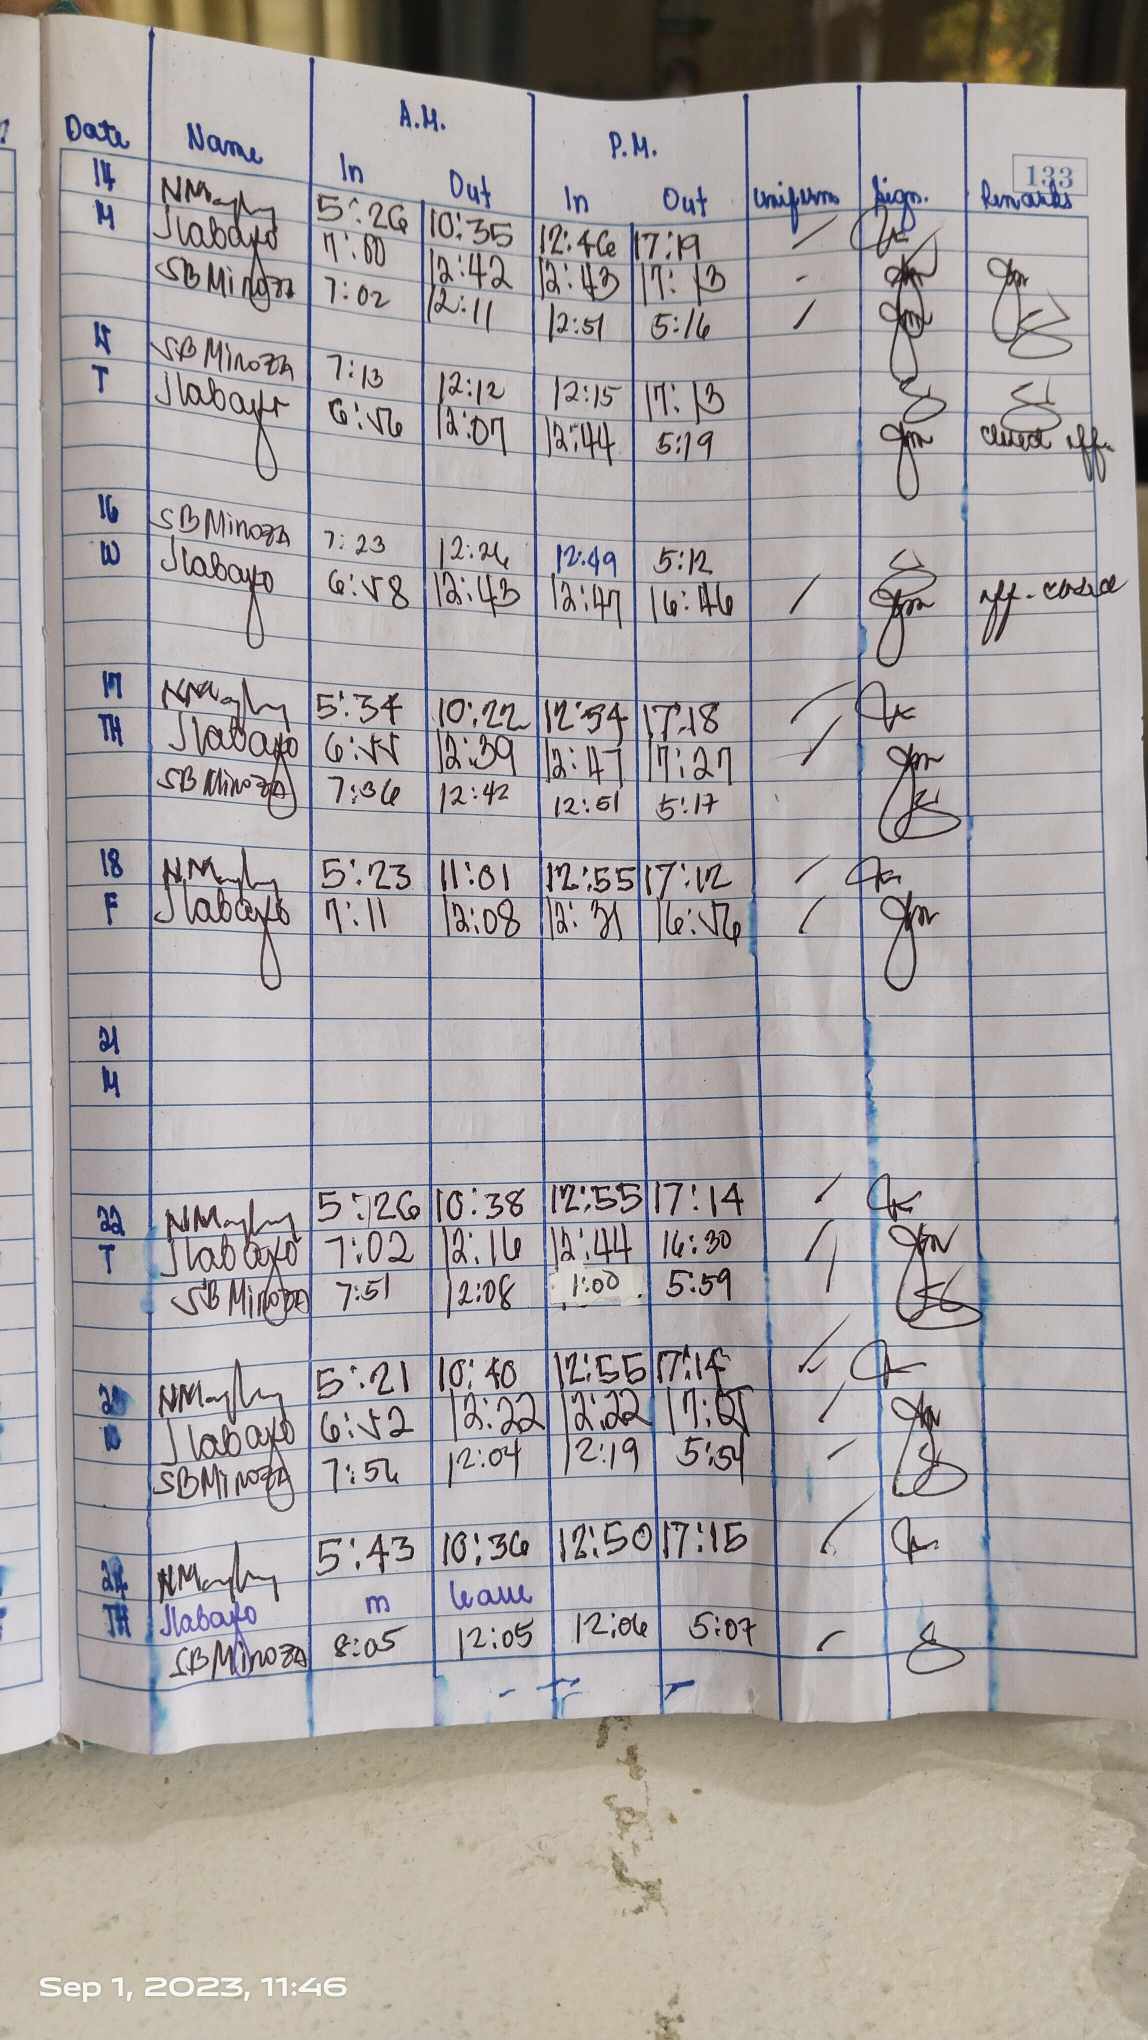 133
A.M. P.M.
Date Name In Out In Out Uniform Sign. Remarks
14 5:26 10:35 12:46 17:19
M Jlabayo 7:00 12:42 12:43 17:13
SBMinoza 7:02 12:11 12:51 5:16
15 SBMinoza 7:13 12:12 12:15 17:13
T Jlabayo 6:56 12:07 12:44 5:19 closed off.
16 SBMinoza 7:23 12:26 12:49 5:12
W Jlabayo 6:58 12:43 12:47 16:46 off. closed
17 5:34 10:22 12:54 17:18
TH Jlabayo 6:55 12:39 12:47 17:27
SBMinoza 7:36 12:42 12:51 5:17
18 5:23 11:01 12:55 17:12
F Jlabayo 7:11 12:08 12:31 16:56
21
M
22 5:26 10:38 12:55 17:14
T Jlabayo 7:02 12:16 12:44 16:30
SBMinoza 7:51 12:08 1:00 5:59
5:21 10:40 12:55 17:14
W Jlabayo 6:52 12:22 12:22
SBMinoza 7:56 12:04 12:19 5:54
24 5:43 10:36 12:50 17:15
TH Jlabayo m leave
SBMinoza 8:05 12:05 12:06 5:07
Sep 1, 2023, 11:46